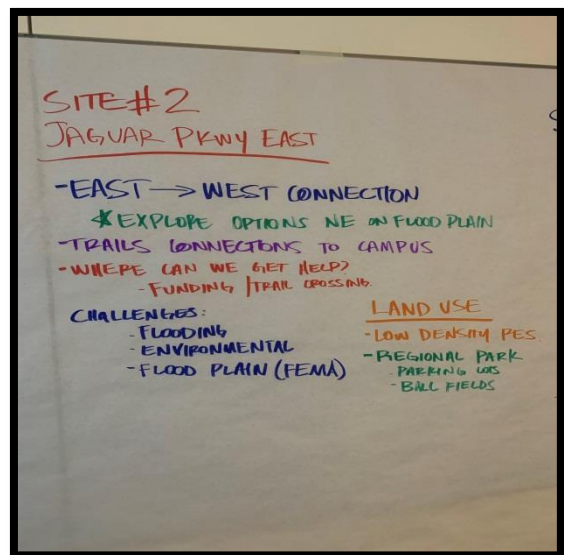 SITE#2
JAGUAR PKWY EAST
-EAST → WEST CONNECTION
*EXPLORE OPTIONS NE ON FLOOD PLAIN
-TRAILS CONNECTIONS TO CAMPUS
-WHERE CAN WE GET HELP?
- FUNDING / TRAIL CROSSING.
CHALLENGES:
- FLOODING
- ENVIRONMENTAL
- FLOOD PLAIN (FEMA)
LAND USE
-LOW DENSITY RES.
-REGIONAL PARK
- PARKING LOTS
- BALL FIELDS